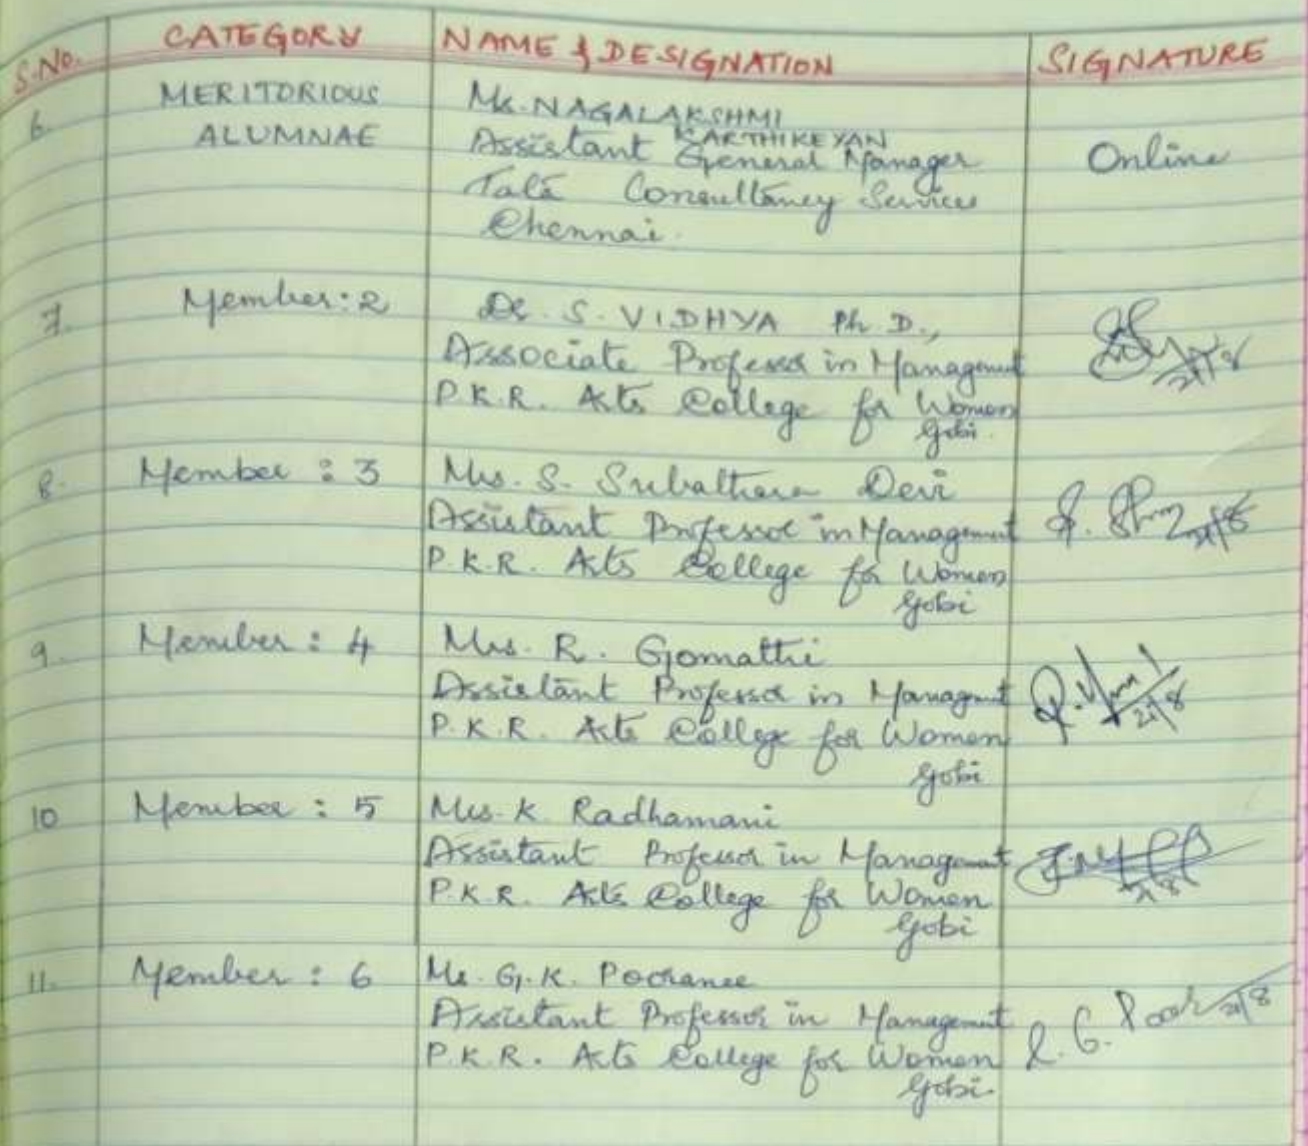 S.No. CATEGORY NAME & DESIGNATION SIGNATURE
6. MERITORIOUS Ms. NAGALAKSHMI
ALUMNAE KARTHIKEYAN
Assistant General Manager Online
Tata Consultancy Services
Chennai.
7. Member: 2 Dr. S. VIDHYA Ph.D.,
Associate Professor in Management 21/8
P.K.R. Arts College for Women
Gobi.
8. Member : 3 Mrs. S. Subalthara Devi
Assistant Professor in Management 21/8
P.K.R. Arts College for Women
Gobi
9. Member : 4 Mrs. R. Gomathi
Assistant Professor in Management 21/8
P.K.R. Arts College for Women
Gobi
10 Member : 5 Mrs. K Radhamani
Assistant Professor in Management
P.K.R. Arts College for Women 21/8
Gobi
11. Member : 6 Ms. G.K. Pooranee
Assistant Professor in Management 21/8
P.K.R. Arts College for Women
Gobi.